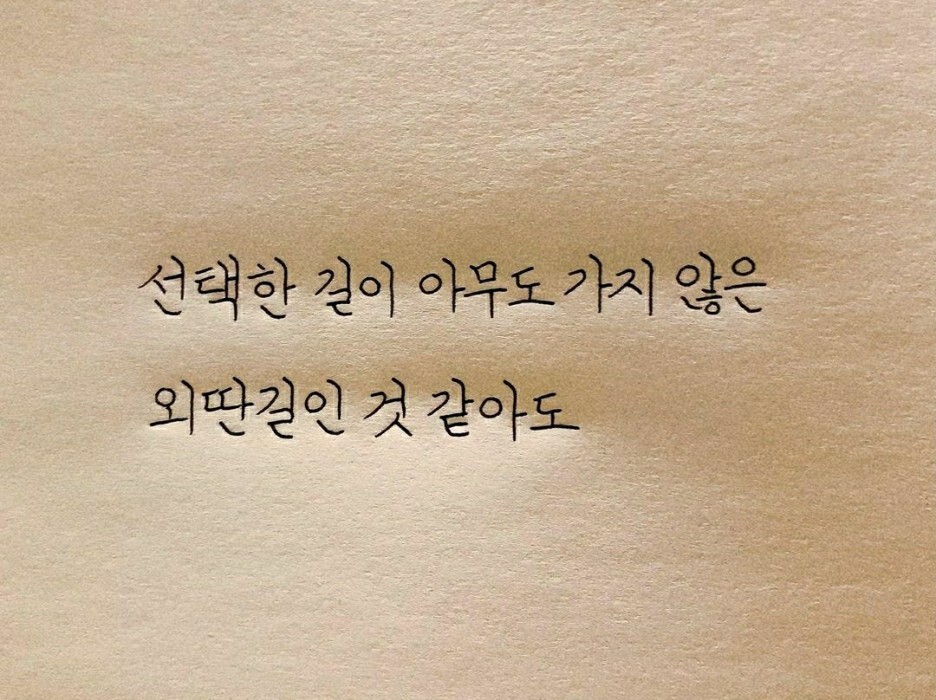 선택한 길이 아무도 가지 않은
외딴길인 것 같아도